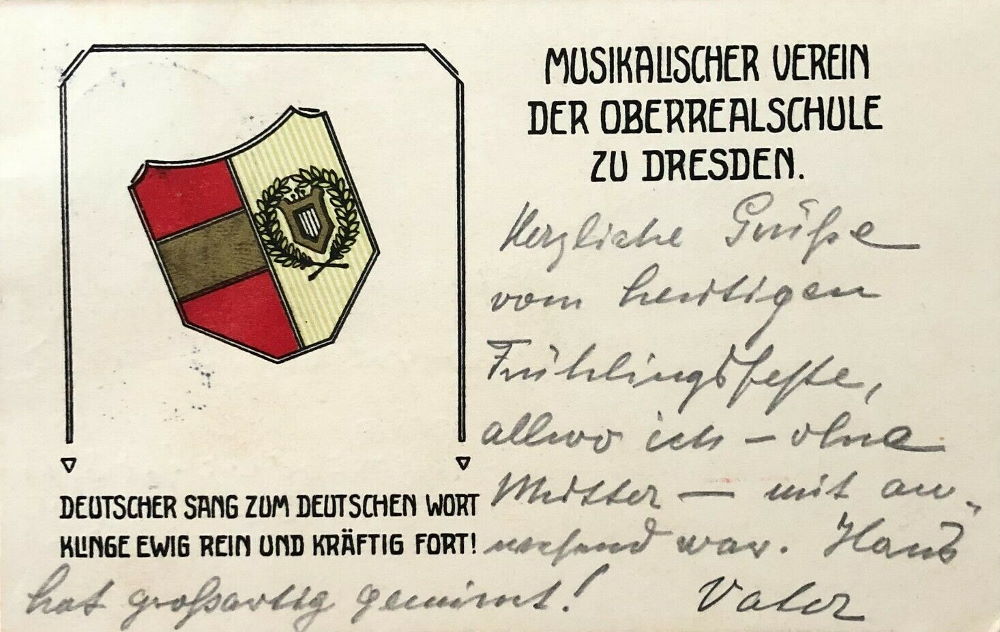 MUSIKALISCHER VEREIN
DER OBERREALSCHULE
ZU DRESDEN.
Herzliche Grüße
vom heutigen
Frühlingsfeste,
allwo ich – ohne
Mutter – mit an-
wesend war. Hans
hat großartig gemimt! Vater
DEUTSCHER SANG ZUM DEUTSCHEN WORT
KLINGE EWIG REIN UND KRÄFTIG FORT!